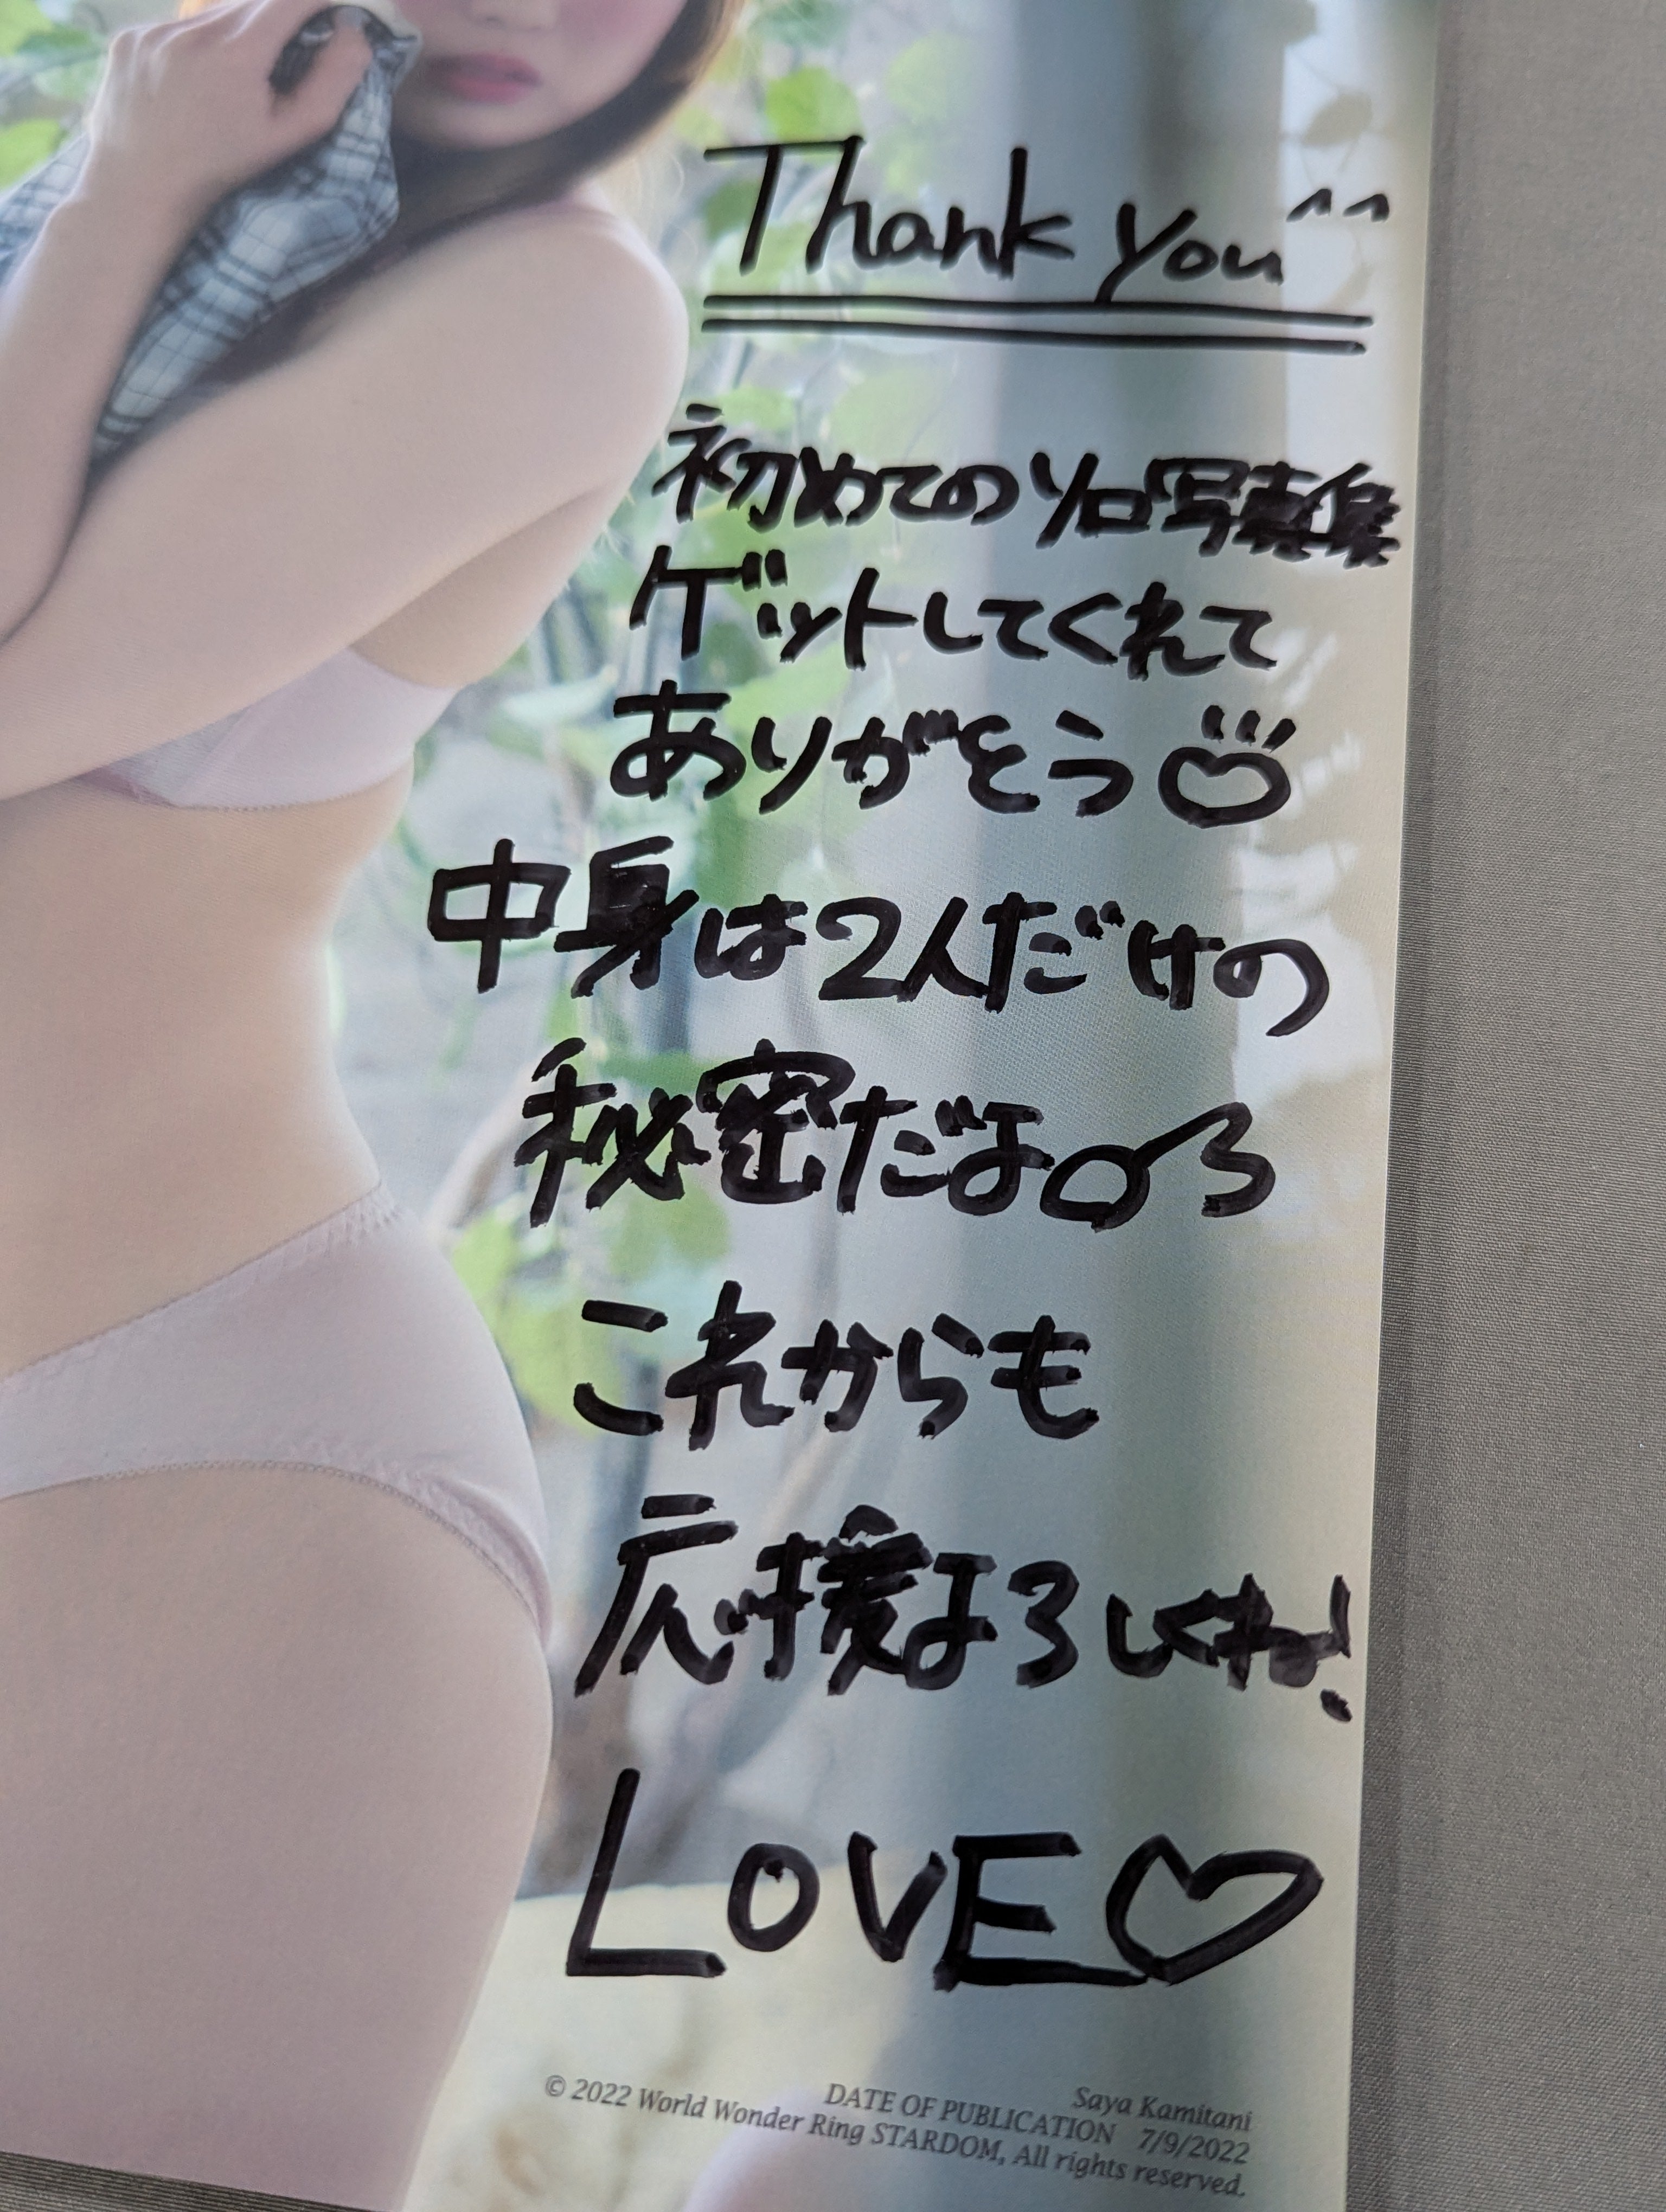 Thank you^^
初めてのソロ写真集
ゲットしてくれて
ありがとう♡
中身は2人だけの
秘密だよ
これからも
応援よろしくね!
LOVE♡
Saya Kamitani
DATE OF PUBLICATION 7/9/2022
© 2022 World Wonder Ring STARDOM, All rights reserved.